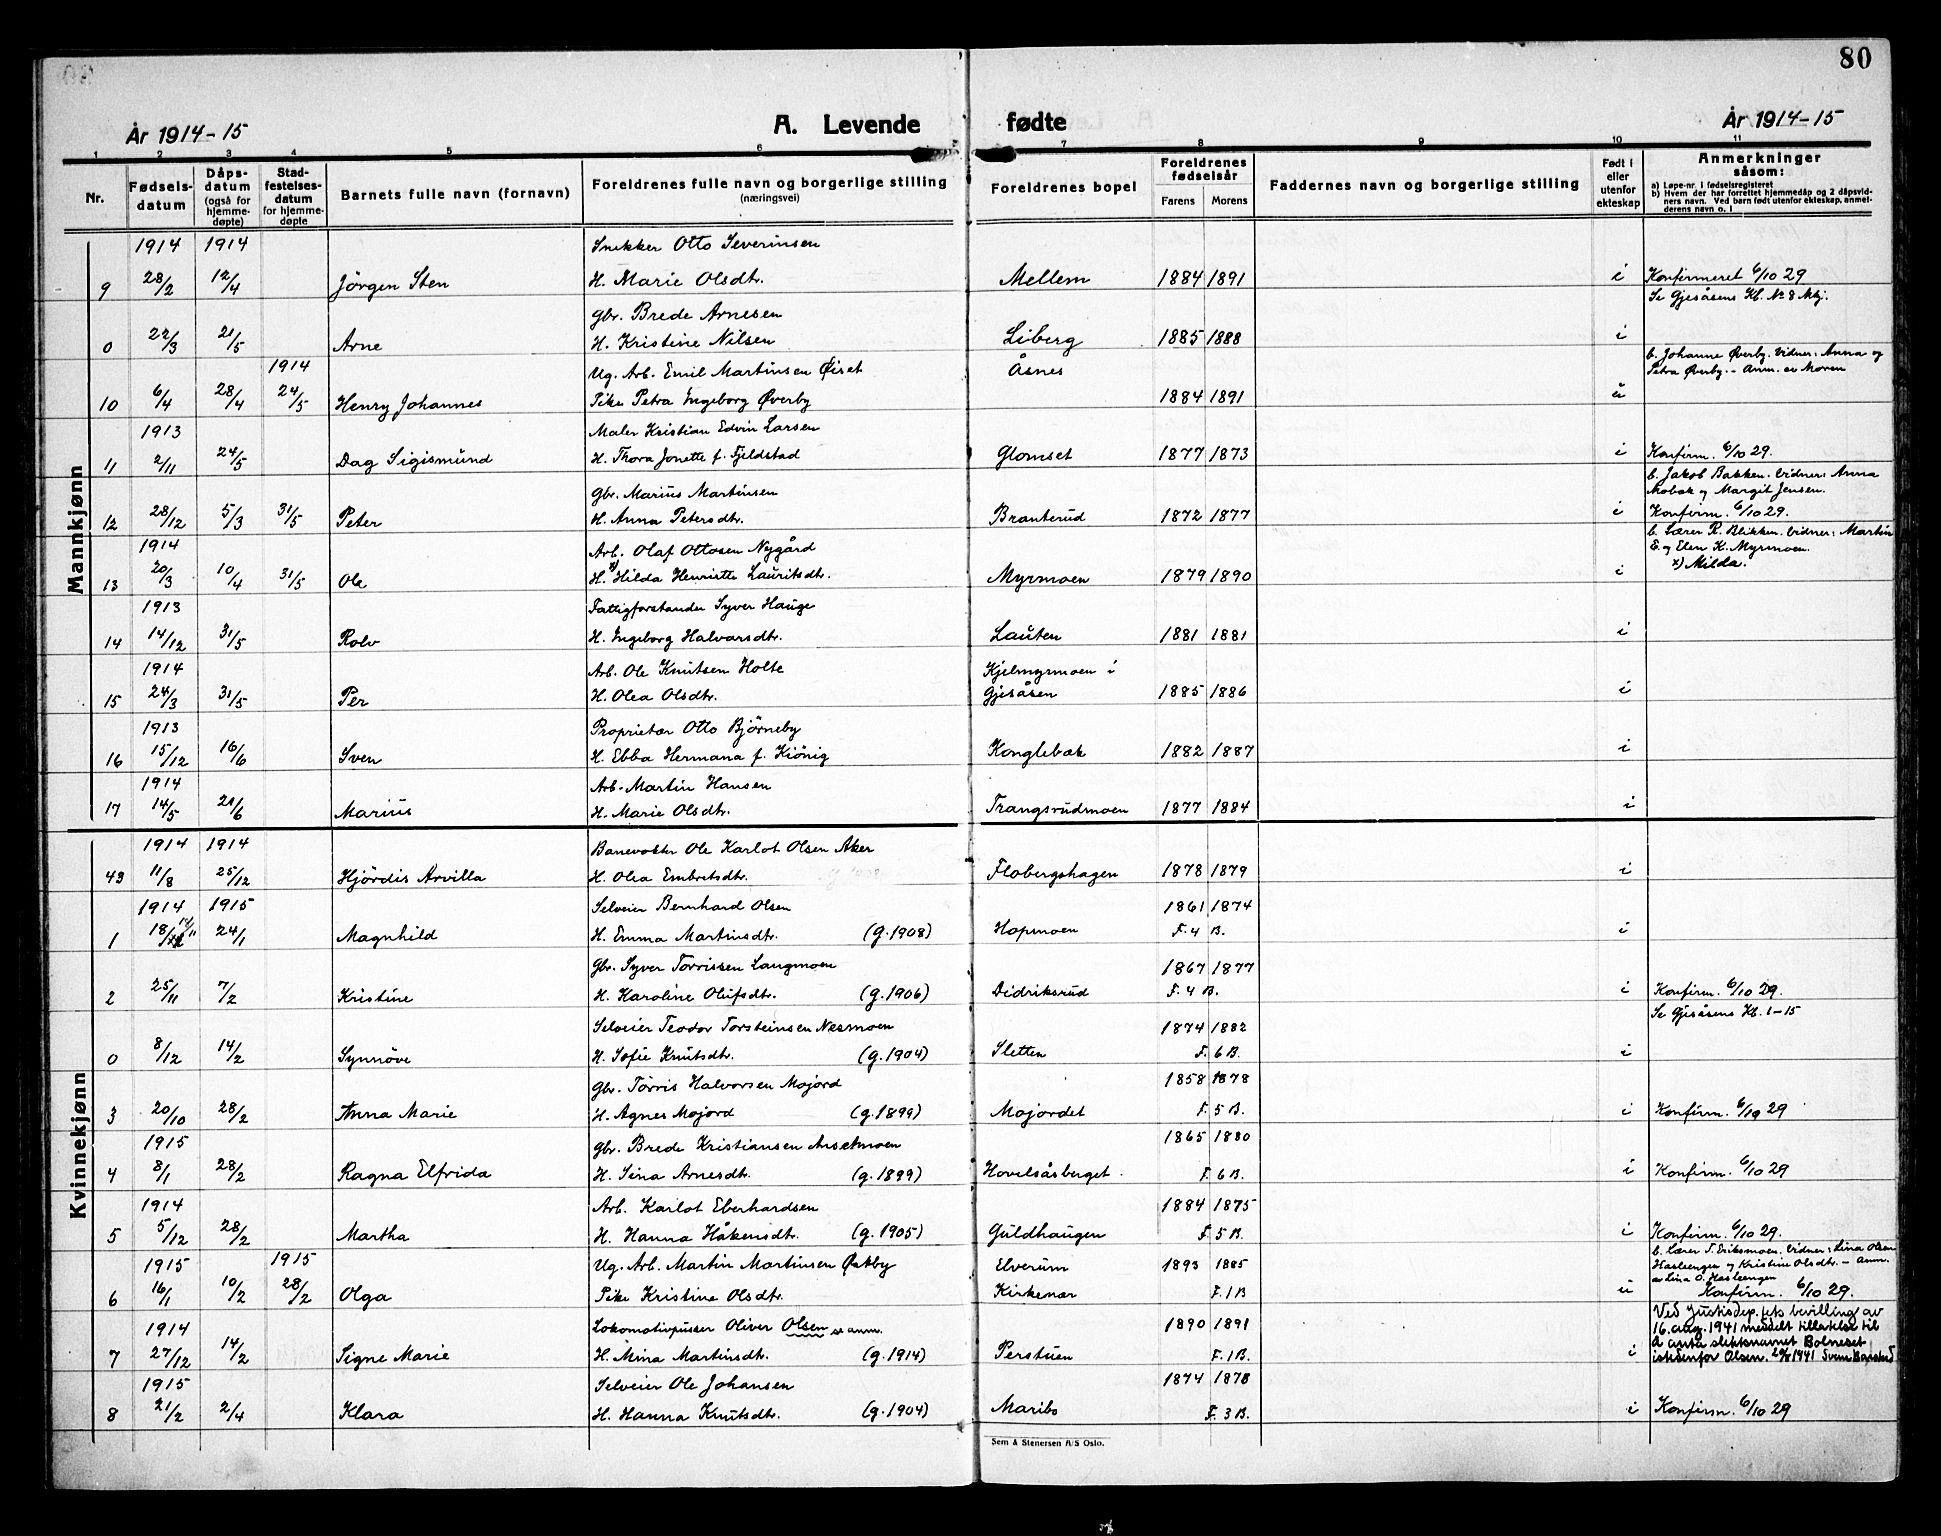 80
År 1914-15 A. Levende fødte År 1914-15
1 2 3 4 5 6 7 8 9 10 11
Nr. Fødsels-datum Dåps-datum (også for hjemme-døpte) Stad-festelses-datum for hjemme-døpte Barnets fulle navn (fornavn) Foreldrenes fulle navn og borgerlige stilling (næringsvei) Foreldrenes bopel Foreldrenes fødselsår Farens Morens Faddernes navn og borgerlige stilling Født i eller utenfor ekteskap Anmerkninger såsom:
a) Løpe-nr. i fødselsregisteret
b) Hvem der har forrettet hjemmedåp og 2 dåpsvid-
ners navn. Ved barn født utenfor ekteskap, anmel-
derens navn o. l
Mannkjønn
1914 1914 Snekker Otto Severinsen
9 28/2 12/4 Jörgen Sten H. Marie Olsdtr. Mellem 1884 1891 i Konfirmeret 6/10 29
Se Gjesåsens Kb. No 8 Mkj.
Gbr. Brede Arnesen
0 22/3 21/5 Arne H. Kristine Nilsen Liberg 1885 1888 i
1914 Ug. Arb. Emil Martinsen Öiset Åsnes b. Johanne Øverby. Vidner: Anna og
Petra Øverby. - Anm. av Moren
10 6/4 28/4 24/5 Henry Johannes Pike Petra Ingeborg Øverby 1884 1891 u
1913 Maler Kristian Edvin Larsen
11 2/11 24/5 Dag Sigismund H. Thora Jonette f. Fjeldstad Glomset 1877 1873 i Konfirm. 6/10 29.
Gbr. Marius Martinsen b. Jakob Bakken. Vidner: Anna
og Margit Jensen.
12 28/12 5/3 31/5 Peter H. Anna Petersdtr. Branterud 1872 1877 i Konfirm. 6/10 29.
1914 Arb. Olaf Ottosen Nygård b. Lærer R. Blikken. Vidner: Martin
E. og Elen K. Myrmoen.
13 20/3 10/4 31/5 Ole H. x) Hilda Henriette Lauritsdtr. Myrmoen 1879 1890 i x) Milda.
1913 Fattigforstander Syver Hauge
14 14/12 31/5 Rolv H. Ingeborg Halvarsdtr. Lauten 1881 1881 i
1914 Arb. Ole Knutsen Holte Kjelmyrmoen i
15 24/3 31/5 Per H. Olea Olsdtr. Gjesåsen 1885 1886 i
1913 Proprietær Otto Björneby
16 15/12 16/6 Sven H. Ebba Hermana f. Kiönig Konglebæk 1882 1887 i
1914 Arb. Martin Hansen
17 14/5 21/6 Marius H. Marie Olsdtr. Trangsrudmoen 1877 1884 i
Kvinnekjønn
1914 1914 Banevokter Ole Karlot Olsen Aker
43 11/8 25/12 Hjördis Arvilla H. Olea Embretsdtr. Flobergshagen 1878 1879 i
1914 1915 Selveier Bernhard Olsen 1861 1874
1 18/12 14/11 24/1 Magnhild H. Emma Martinsdtr. (g. 1908) Hapmoen F. 4 B. i
Gbr. Syver Torrissen Langmoen 1867 1877
2 25/11 7/2 Kristine H. Karoline Olufsdtr. (g. 1906) Didriksrud F. 4 B. i Konfirm. 6/10 29.
Selveier Teodor Torsteinsen Nesmoen 1874 1882 Se Gjesåsens Kb. 1-15
0 8/12 14/2 Synnöve H. Sofie Knutsdtr. (g. 1904) Sletten F. 6 B. i
Gbr. Torris Halvorsen Mojord 1858 1878
3 20/10 28/2 Anna Marie H. Agnes Mojord (g. 1899) Mojordet F. 5 B. i Konfirm. 6/10 29
1915 Gbr. Brede Kristiansen Anselmoen 1865 1880
4 8/1 28/2 Ragna Elfrida H. Sina Arnesdtr. (g. 1899) Hovelsåsberget. F. 6 B. i Konfirm. 6/10 29
1914 Arb. Karlot Eberhardsen 1884 1875
5 5/12 28/2 Martha H. Hanna Håkensdtr. (g. 1905) Guldhaugen F. 5 B. i Konfirm. 6/10 29.
1915 1915 Ug. Arb. Martin Martinsen Østby Elverum 1893 1885 b. Lærer T. Eriksmoen. Vidner: Lina Olsen
Hasleengen og Kristine Olsdtr. - Anm.
av Lina O. Hasleengen
6 16/1 10/2 28/2 Olga Pike Kristine Olsdtr. Kirkenær F. 1 B u Konfirm. 6/10 29.
1914 Lokomotivpusser Oliver Olsen se anm. 1890 1891 Ved Justisdep.jets bevilling av
16. aug. 1941 meddelt tillatelse til
å anta slektsnavnet Bolneset
7 27/12 14/2 Signe Marie H. Mina Martinsdtr. (g. 1914) Perstuen F. 1 B. i istedenfor Olsen. 20/8 1941
1915 Selveier Ole Johansen 1874 1878
8 21/2 2/4 Klara H. Hanna Knutsdtr. (g. 1904) Maribo F. 3 B. i Konfirm. 6/10 29
Sem & Stenersen A/S Oslo.